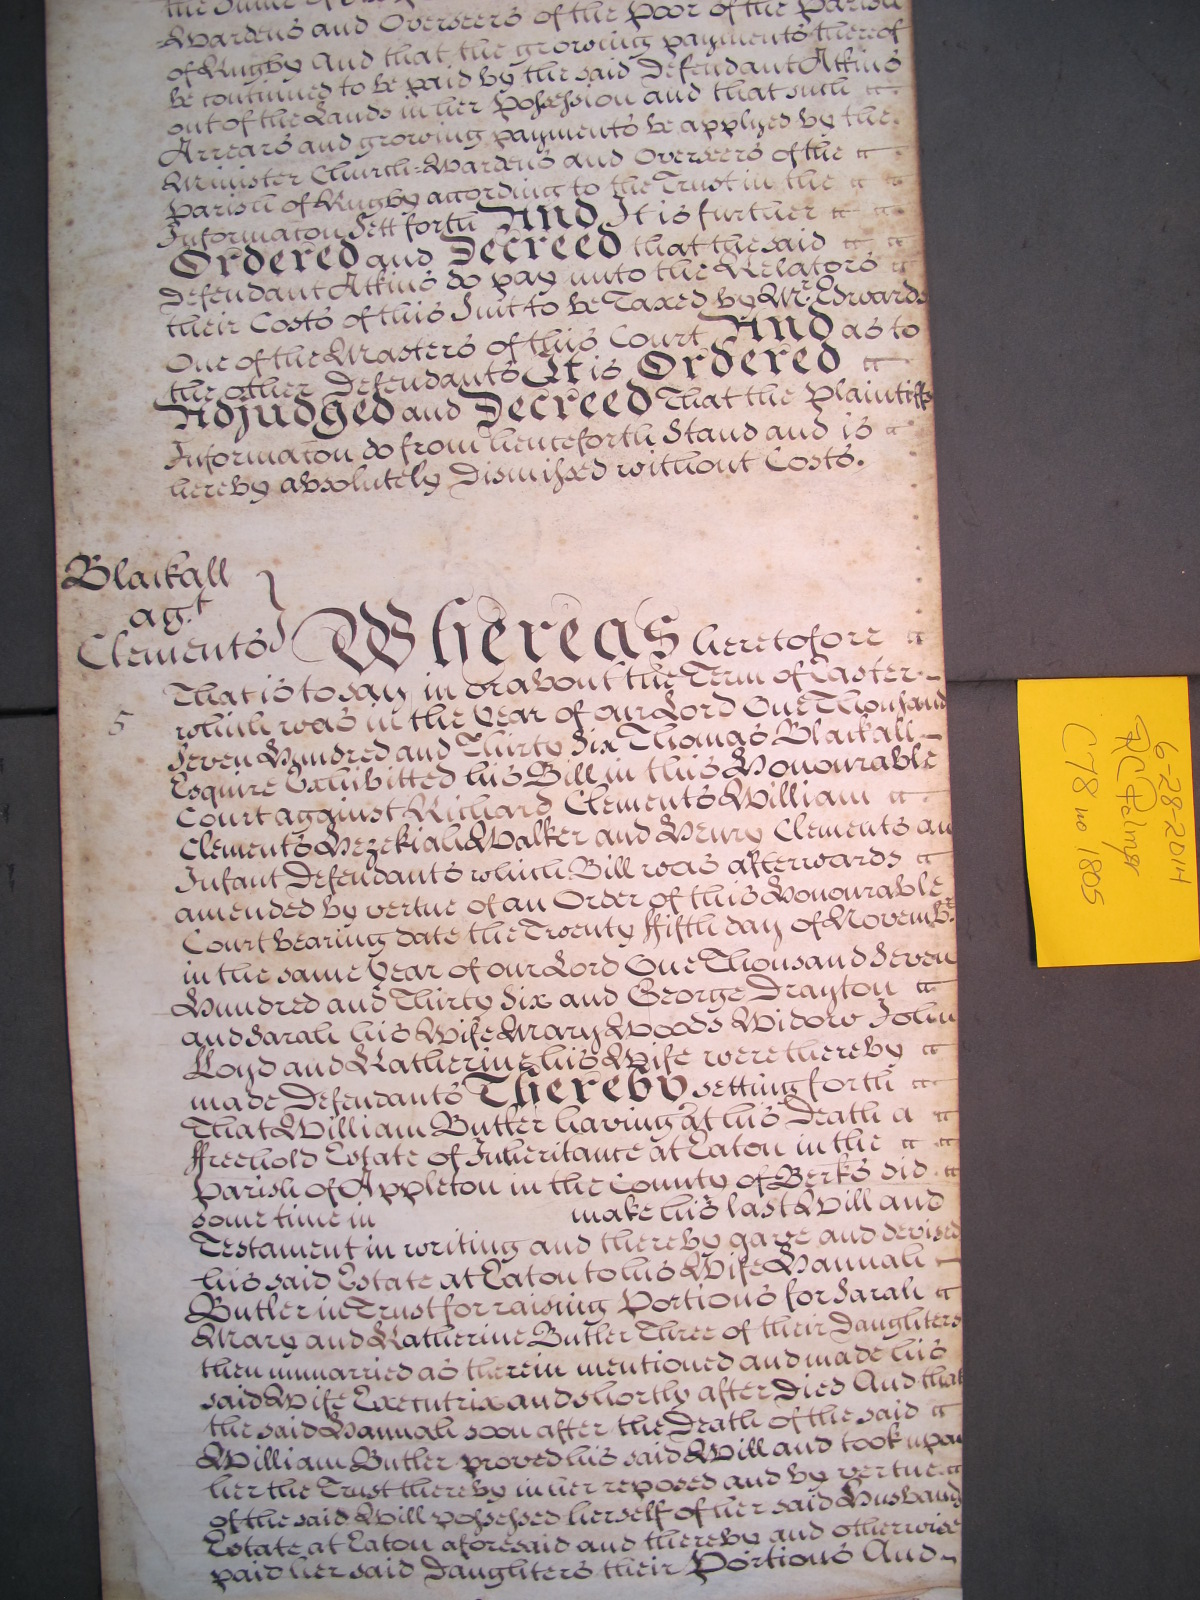 Wardens and Overseers of the Poor of the Parish
of Rugby And that the growing payments thereof
be continued to be paid by the said Defendant Atkins
out of the Lands in her Possession and that such
Arrears and growing payments be applyed by the
Minister Church=Wardens and Overseers of the
Parish of Rugby according to the Trust in the
Informacon Sett forth And It is further
Ordered and Decreed that the said
Defendant Atkins do pay unto the Relators
their Costs of this Suit to be Taxed by Mr. Edwards
One of the Masters of this Court And as to
the other Defendants It is Ordered
Adjudged and Decreed That the Plaintiffs
Informacon do from henceforth Stand and is
hereby absolutely Dismissed without Costs.
Blackall
agt
Clements
Whereas heretofore
That is to say in or about the Term of Easter
5
which was in the Year of our Lord One Thousand
Seven Hundred and Thirty Six Thomas Blackall
Esquire Exhibitted his Bill in this Honourable
Court against Richard Clements William
Clements Hezekiah Walker and Henry Clements an
Infant Defendants which Bill was afterwards
amended by vertue of an Order of this Honourable
Court bearing date the Twenty ffifth day of Novembr.
in the same Year of our Lord One Thousand Seven
Hundred and Thirty Six and George Drayton
and Sarah his Wife Mary Woods Widow John
Loyd and Katherine his Wife were thereby
made Defendants Thereby setting forth
That William Butler having at his Death a
ffreehold Estate of Inheritance at Eaton in the
Parish of Appleton in the County of Berks did
some time in make his last Will and
Testament in writing and thereby gave and devised
his said Estate at Eaton to his Wife Hannah
Butler in Trust for raising Portions for Sarah
Mary and Katherine Butler Three of their Daughters
then unmarried as therein mentioned and made his
said Wife Executrix and shortly after Died And that
the said Hannah soon after the Death of the said
William Butler proved his said Will and took upon
her the Trust thereby in her reposed and by vertue
of the said Will possessed herself of her said Husbands
Estate at Eaton aforesaid and thereby and otherwise
paid her said Daughters their Portions And
6-28-2014
C78 no 1805